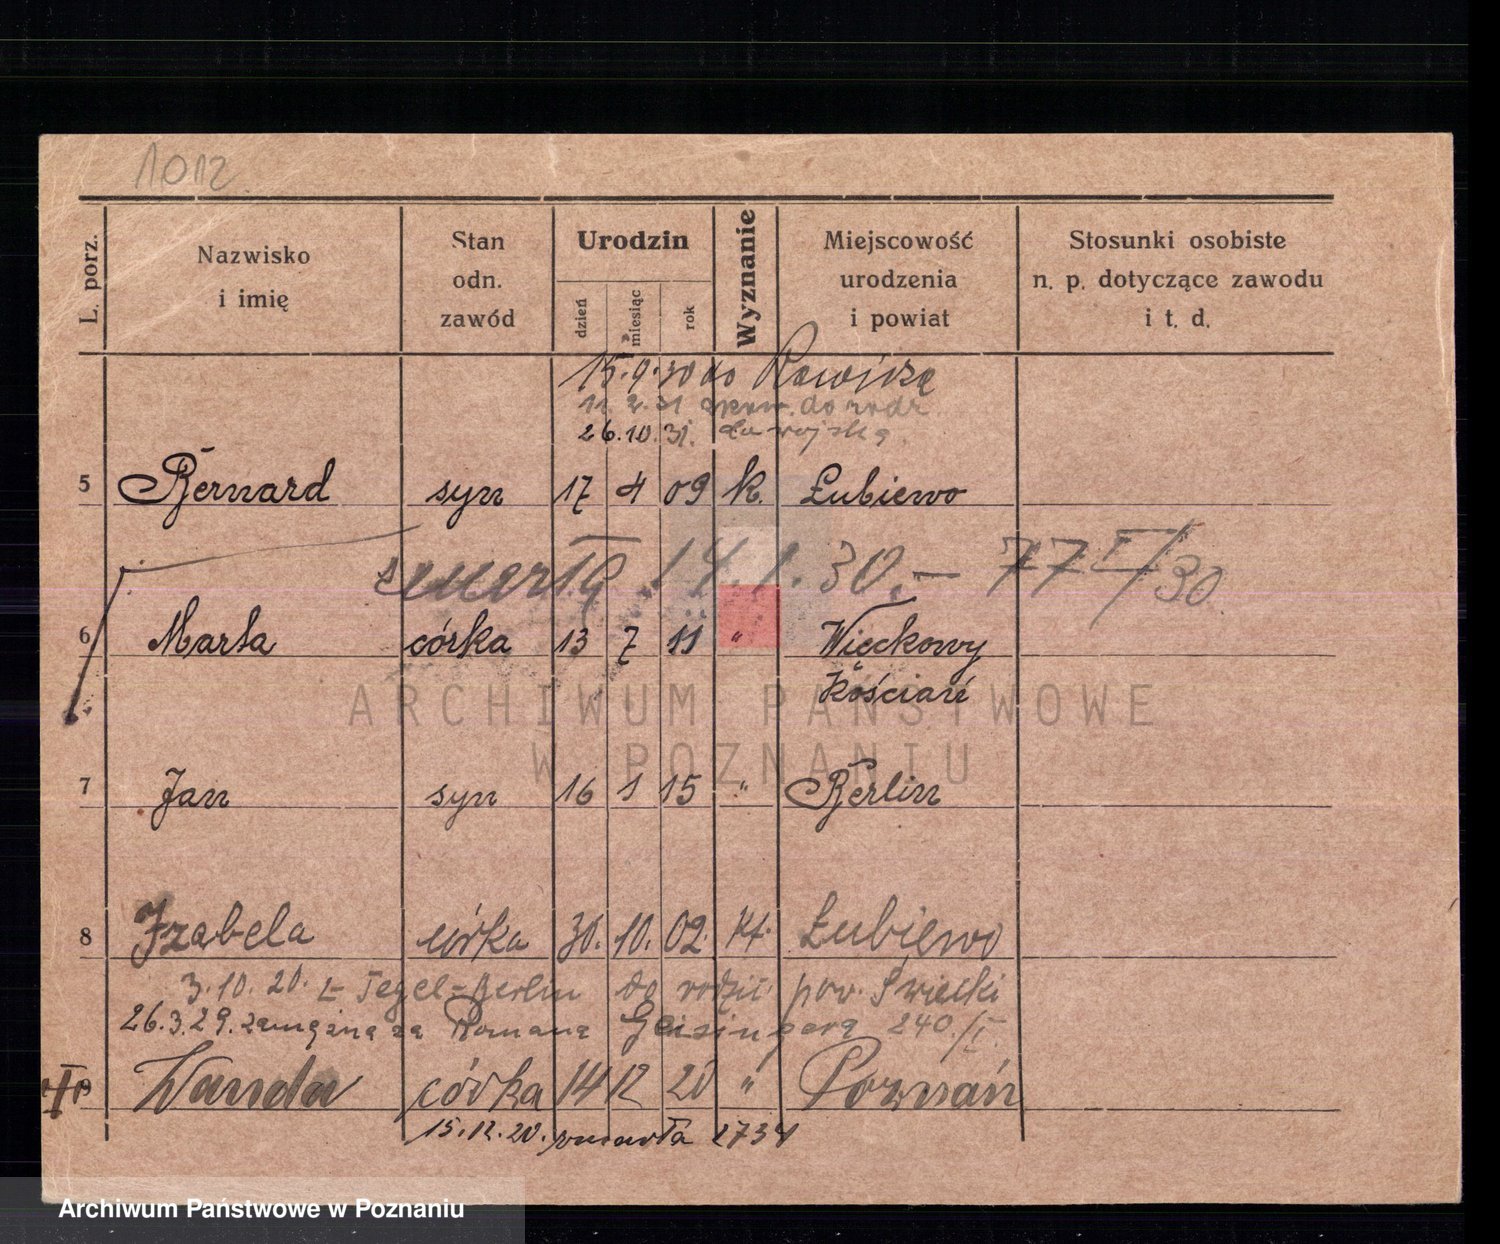 1012
L. porz. Nazwisko i imię Stan odn. zawód Urodzin dzień miesiąc rok Wyznanie Miejscowość urodzenia i powiat Stosunki osobiste n. p. dotyczące zawodu i t. d.
15.9.30 do
11.2.31 do rodz.
26.10.31. do wojska.
5 Bernard syn 17 4 09 k. Łubiewo
14.1.30.— 77 I/30
6 Marta córka 13 7 11 " Więckowy
Kościań
7 Jan syn 16 1 15 " Berlin
8 Izabela córka 30. 10. 02. kt. Łubiewo
3.10.20. z Tegel=Berlin do rodzic. pow. Świecki
26.3.29. zamężna za Romana Geisingera 240./I.
9 Wanda córka 14 12 20 " Poznań
15.12.20. zmarła 2734
ARCHIWUM PAŃSTWOWE
W POZNANIU
Archiwum Państwowe w Poznaniu